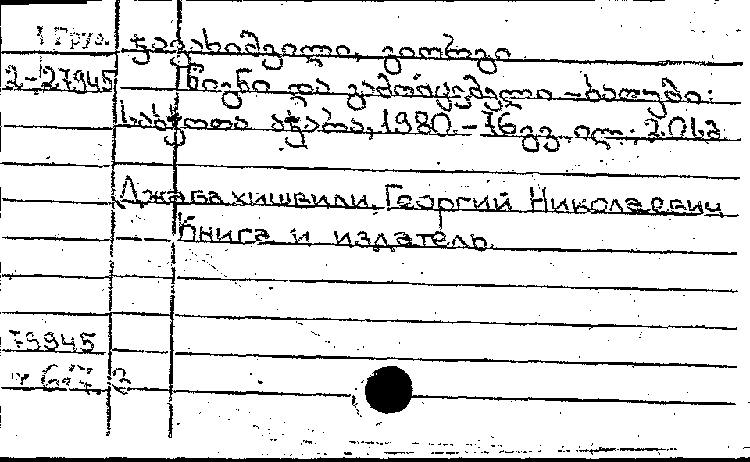 Груз. ჯავახიშვილი, გიორგი
2-27945 წიგნი და გამომცემელი -ბათუმი:
საბჭოთა აჭარა, 1980. - 76გვ. ილ.; 20სმ
Джавахишвили, Георгий Николаевич
Книга и издатель.
79945